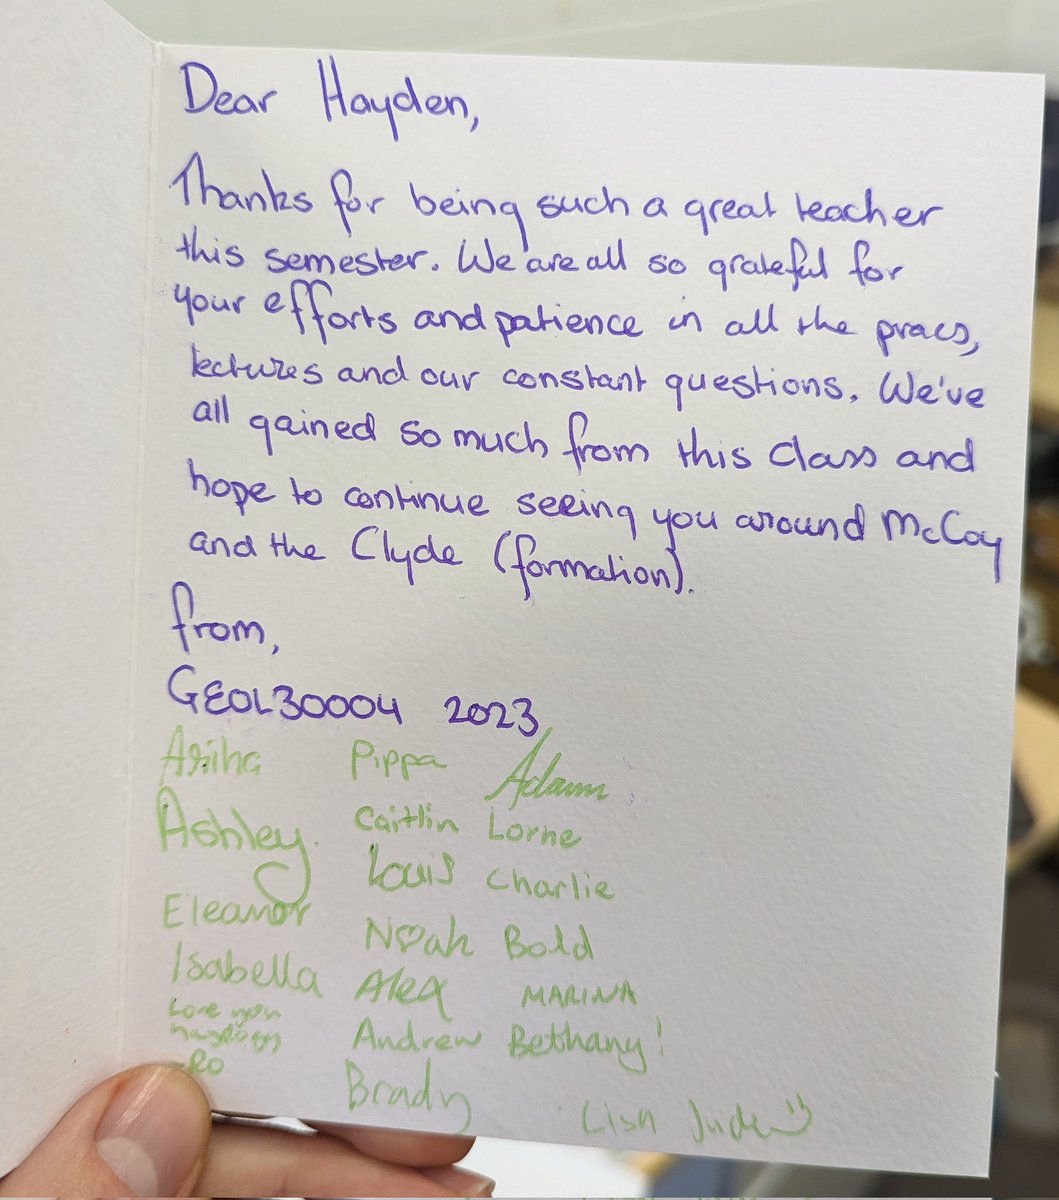 Dear Hayden,
Thanks for being such a great teacher
this semester. We are all so grateful for
your efforts and patience in all the pracs,
lectures and our constant questions. We've
all gained so much from this class and
hope to continue seeing you around McCoy
and the Clyde (formation).
from,
GEOL30004 2023
Ariha Pippa Adam
Ashley. Caitlin Lorne
Louis Charlie
Eleanor Noah Bold
Isabella Alex MARINA
Love you
Andrew Bethany!
-Ro
Brady Lisa Jude